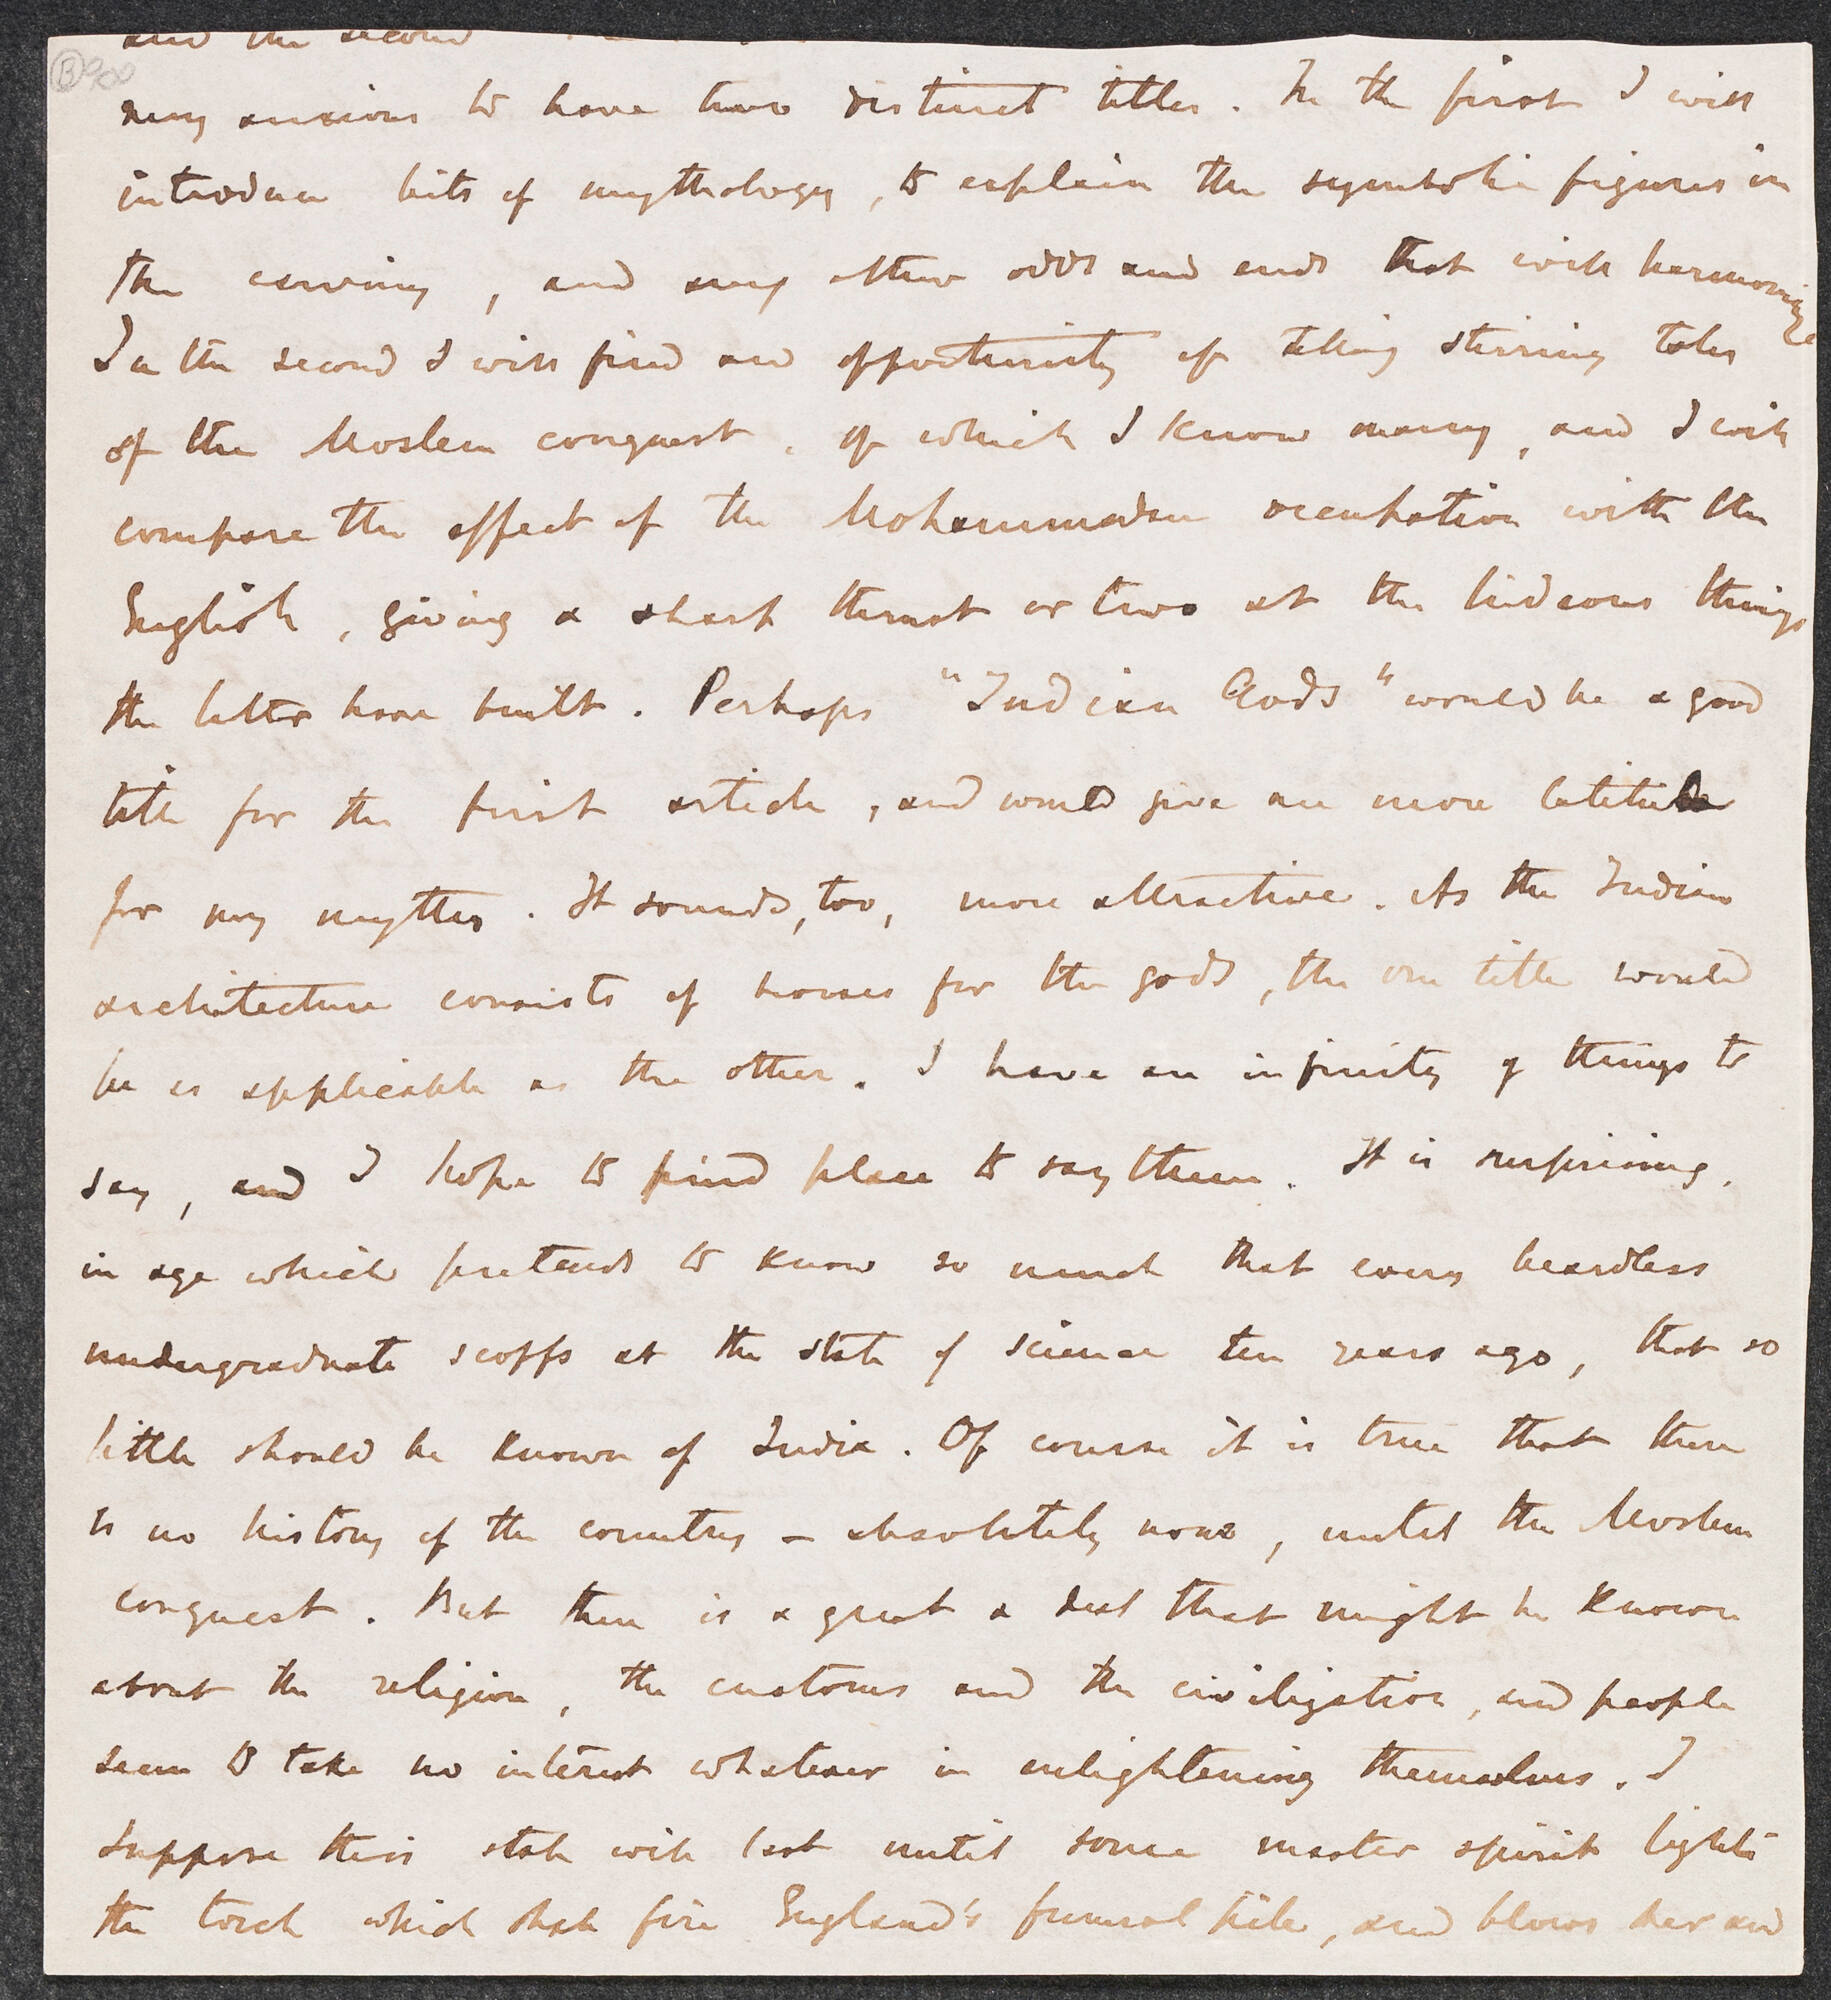 and the second
very anxious to have two distinct titles. In the first I will
introduce bits of mythology, to explain the symbolic figures in
the carving, and any other odds and ends that will harmonize
In the second I will find an opportunity of telling stirring tales
of the Moslem conquest, of which I know many, and I will
compare the effect of the Mohammadan occupation with the
English, giving a sharp thrust or two at the hideous things
the latter have built. Perhaps "Indian Gods" would be a good
title for the first article, and would give me more latitude
for my myths. It sounds, too, more attractive. As the Indian
architecture consists of houses for the gods, the one title would
be as applicable as the other. I have an infinity of things to
say, and I hope to find place to say them. It is surprising,
in age which pretends to know so much that every beardless
undergraduate scoffs at the state of science ten years ago, that so
little should be known of India. Of course it is true that there
is no history of the country - absolutely none, until the Moslem
conquest. But there is a great a deal that might be known
about the religion, the customs and the civilization, and people
seem to take no interest whatever in enlightening themselves. I
suppose this state will last until some master spirit lights
the torch which shall fire England's funeral pile, and blows her and